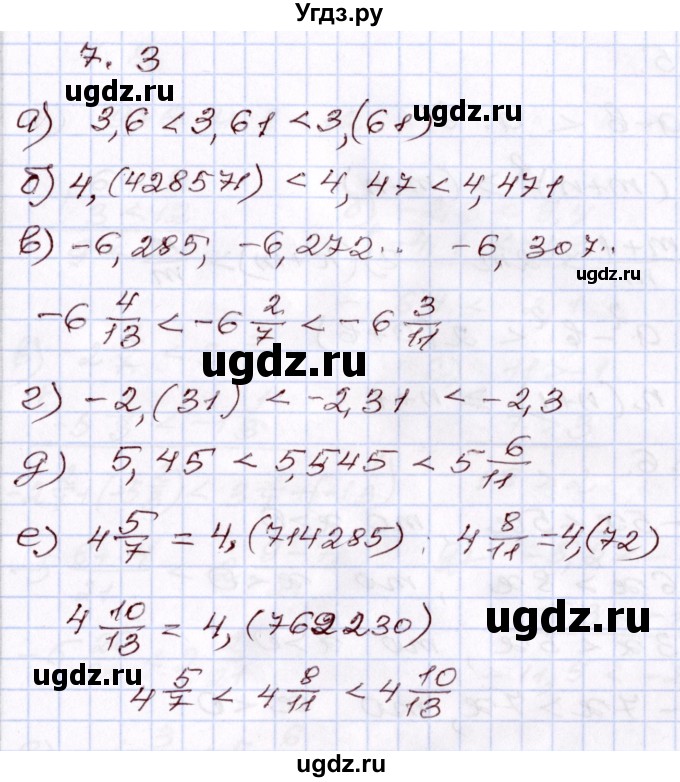 Угдз.ру
7.3
ugdz.ru
ugdz.ru
а) 3,6 < 3,61 < 3,(61)
б) 4,(428571) < 4,47 < 4,471
в) -6,285, -6,272.. -6,307..
ugdz.ru
-6 4/13 < -6 2/7 < -6 3/11
ugdz.ru
г) -2,(31) < -2,31 < -2,3
д) 5,45 < 5,545 < 5 6/11
е) 4 5/7 = 4,(714285). 4 8/11 = 4,(72)
4 10/13 = 4,(769230)
ugdz.ru
ugdz.ru
4 5/7 < 4 8/11 < 4 10/13
ugdz.ru
ugdz.ru
ugdz.ru
Угдз.ру